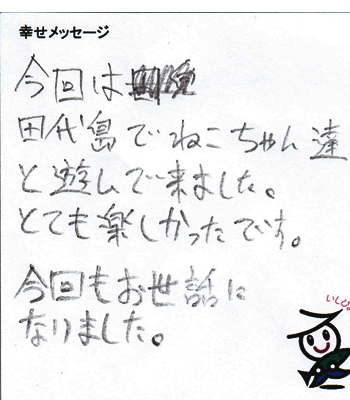 幸せメッセージ
今回は
田代島でねこちゃん達
と遊んで来ました。
とても楽しかったです。
今回もお世話に
なりました。
いしぴょん